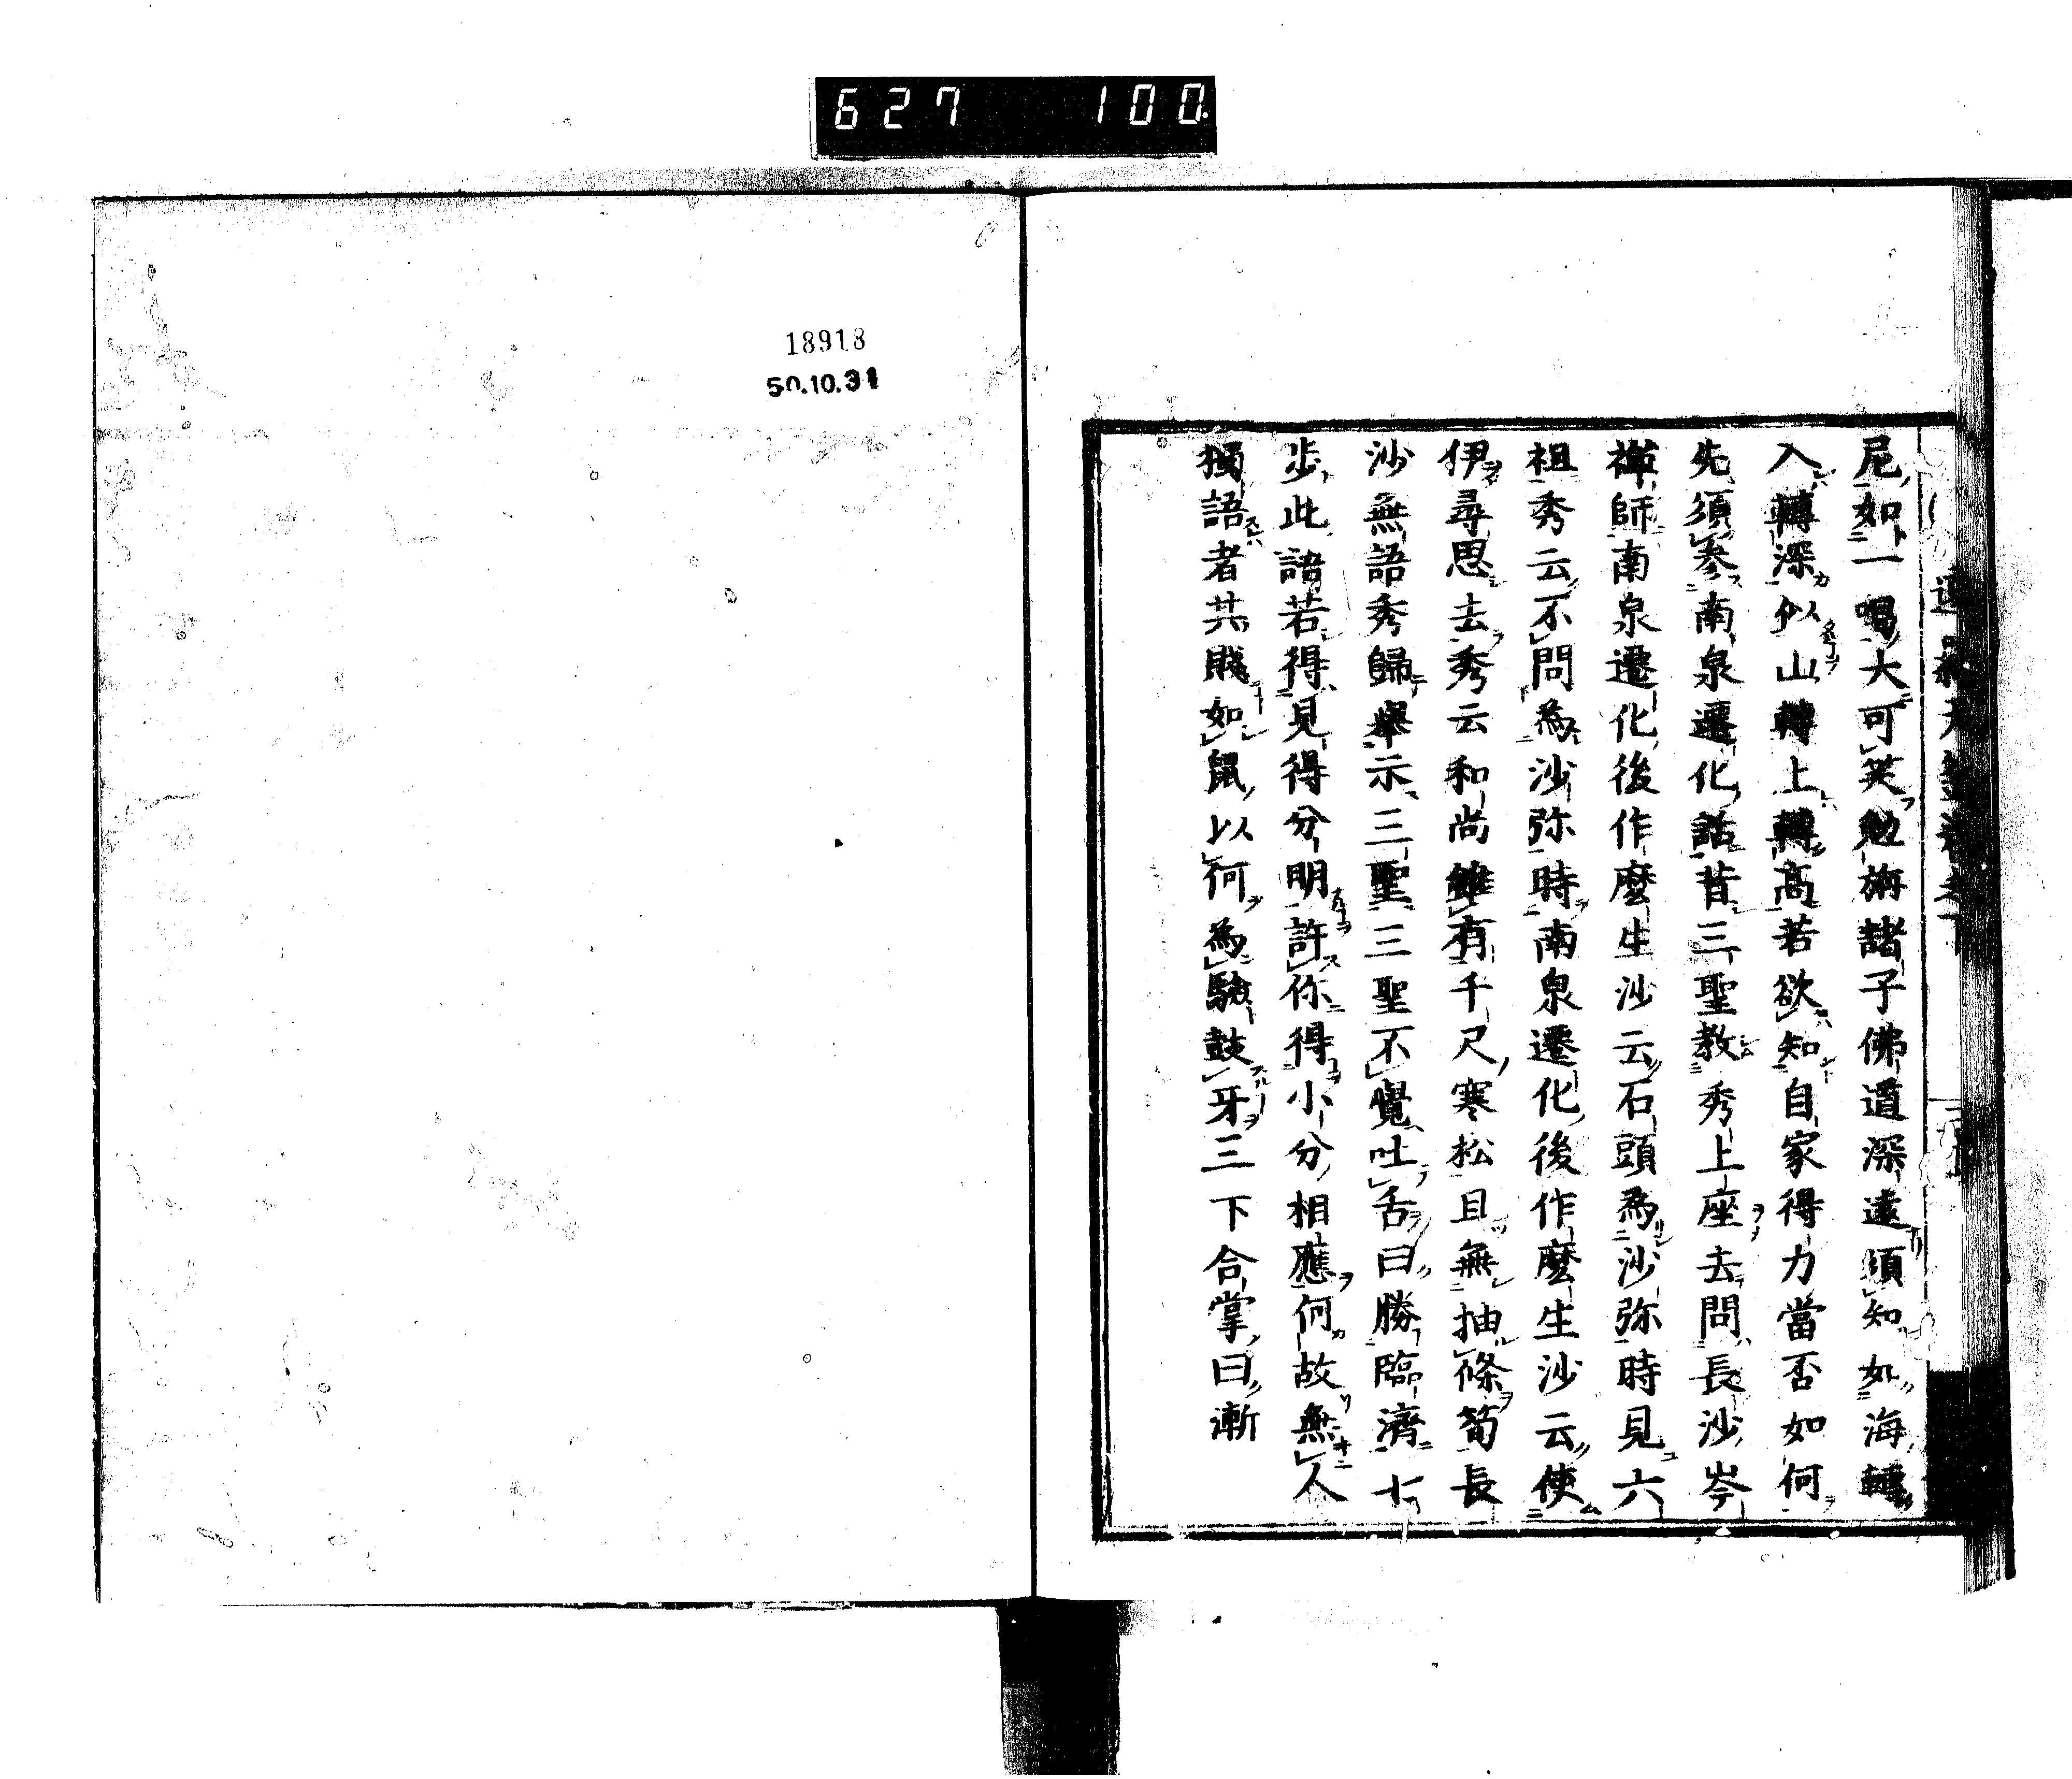 627 100
尼如一喝大可笑勉旃諸子佛道深遠須知如海轉
入轉深似山轉上轉高若欲知自家得力當否如何
先須參南泉遷化話昔三聖教秀上座去問長沙岑
禪師南泉遷化後作麼生沙云石頭為沙弥時見六
祖秀云不問為沙弥時南泉遷化後作麼生沙云使
伊尋思去秀云和尚雖有千尺寒松且無抽條筍長
沙無語秀歸舉示三聖三聖不覺吐舌曰勝臨濟七
步此語若得見得分明許你得小分相應何故無人
獨語者其賤如鼠以何為驗鼓牙三下合掌曰漸
18918
50.10.31